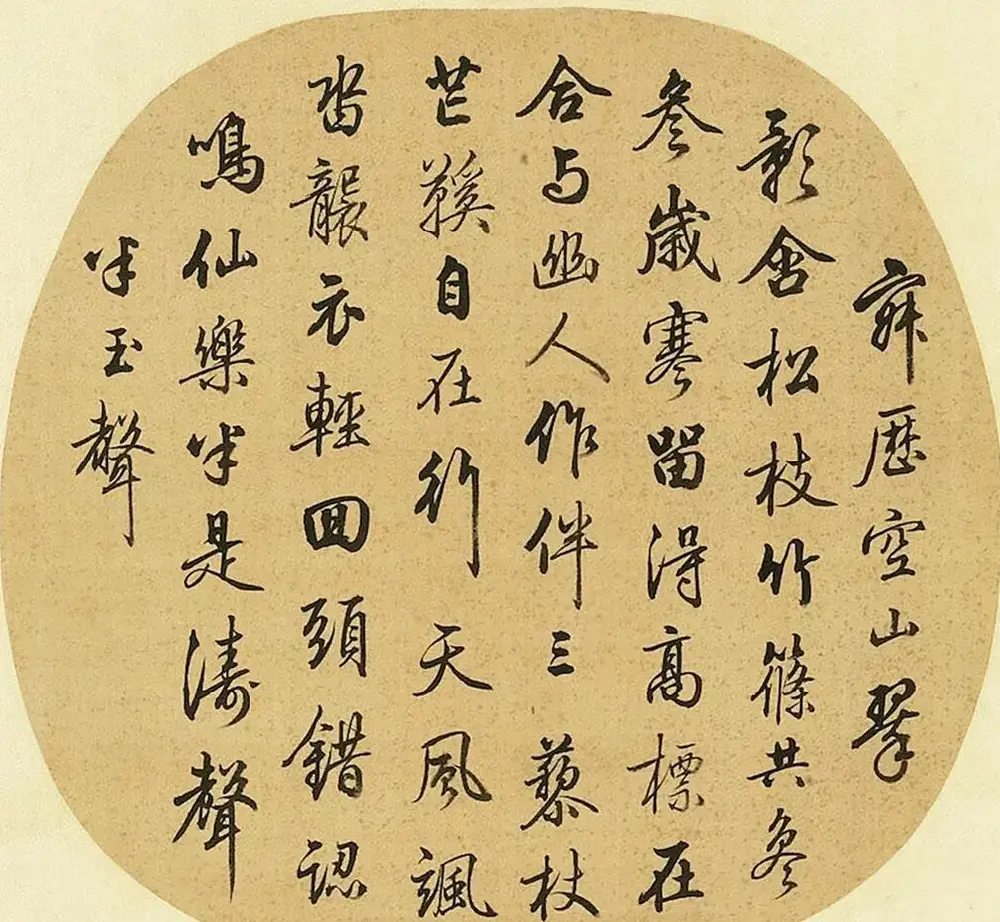 寂歷空山翠
影含松枝竹篠共參
參歲寒留得高標在
合与幽人作伴三藜杖
芒鞵自在行天風颯
沓襲衣輕回頭錯認
鳴仙樂半是濤聲
半玉聲